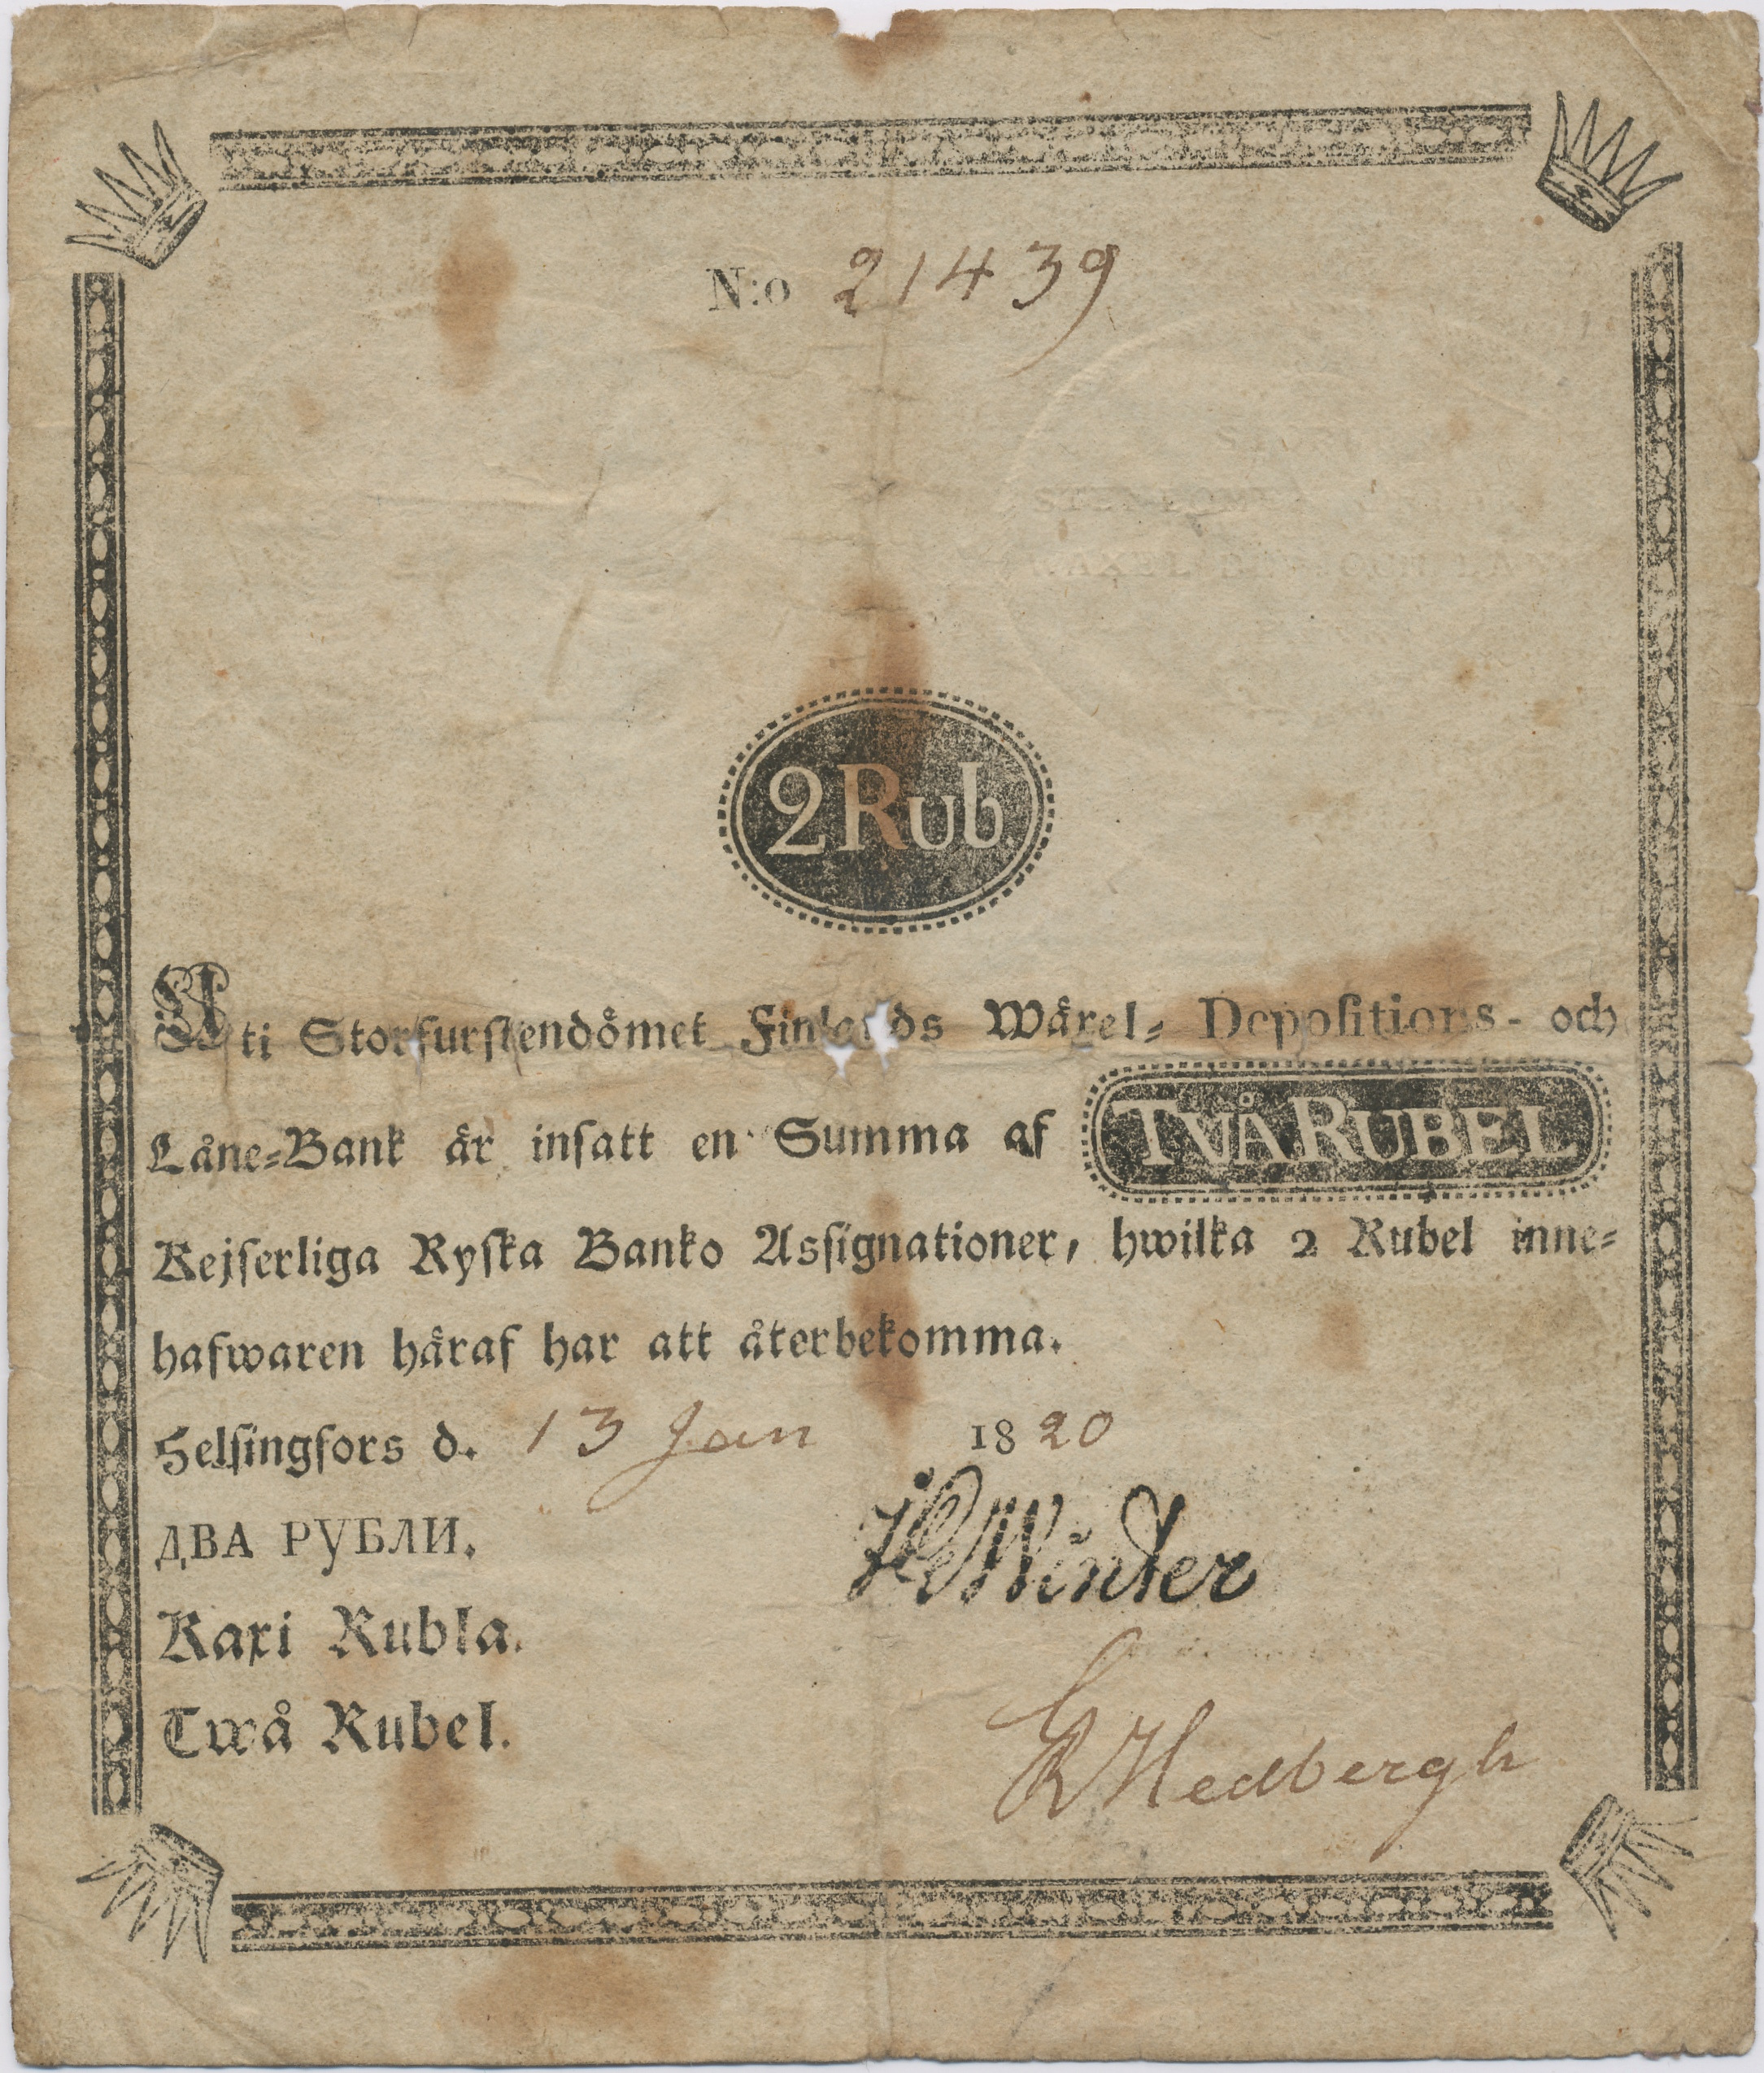 N:o 21439
2 Rub
Uti Storfurstendömet Finlands Wäxel- Depositions- och
Låne-Bank är insatt en Summa af TVÅ RUBEL
Kejserliga Ryska Banko Assignationer, hwilka 2 Rubel inne-
hafwaren häraf har att återbekomma.
Helsingfors d. 13 Jan 1820
ДВА РУБЛИ.
Winter
Kaxi Rubla.
Twå Rubel.
Hedbergh